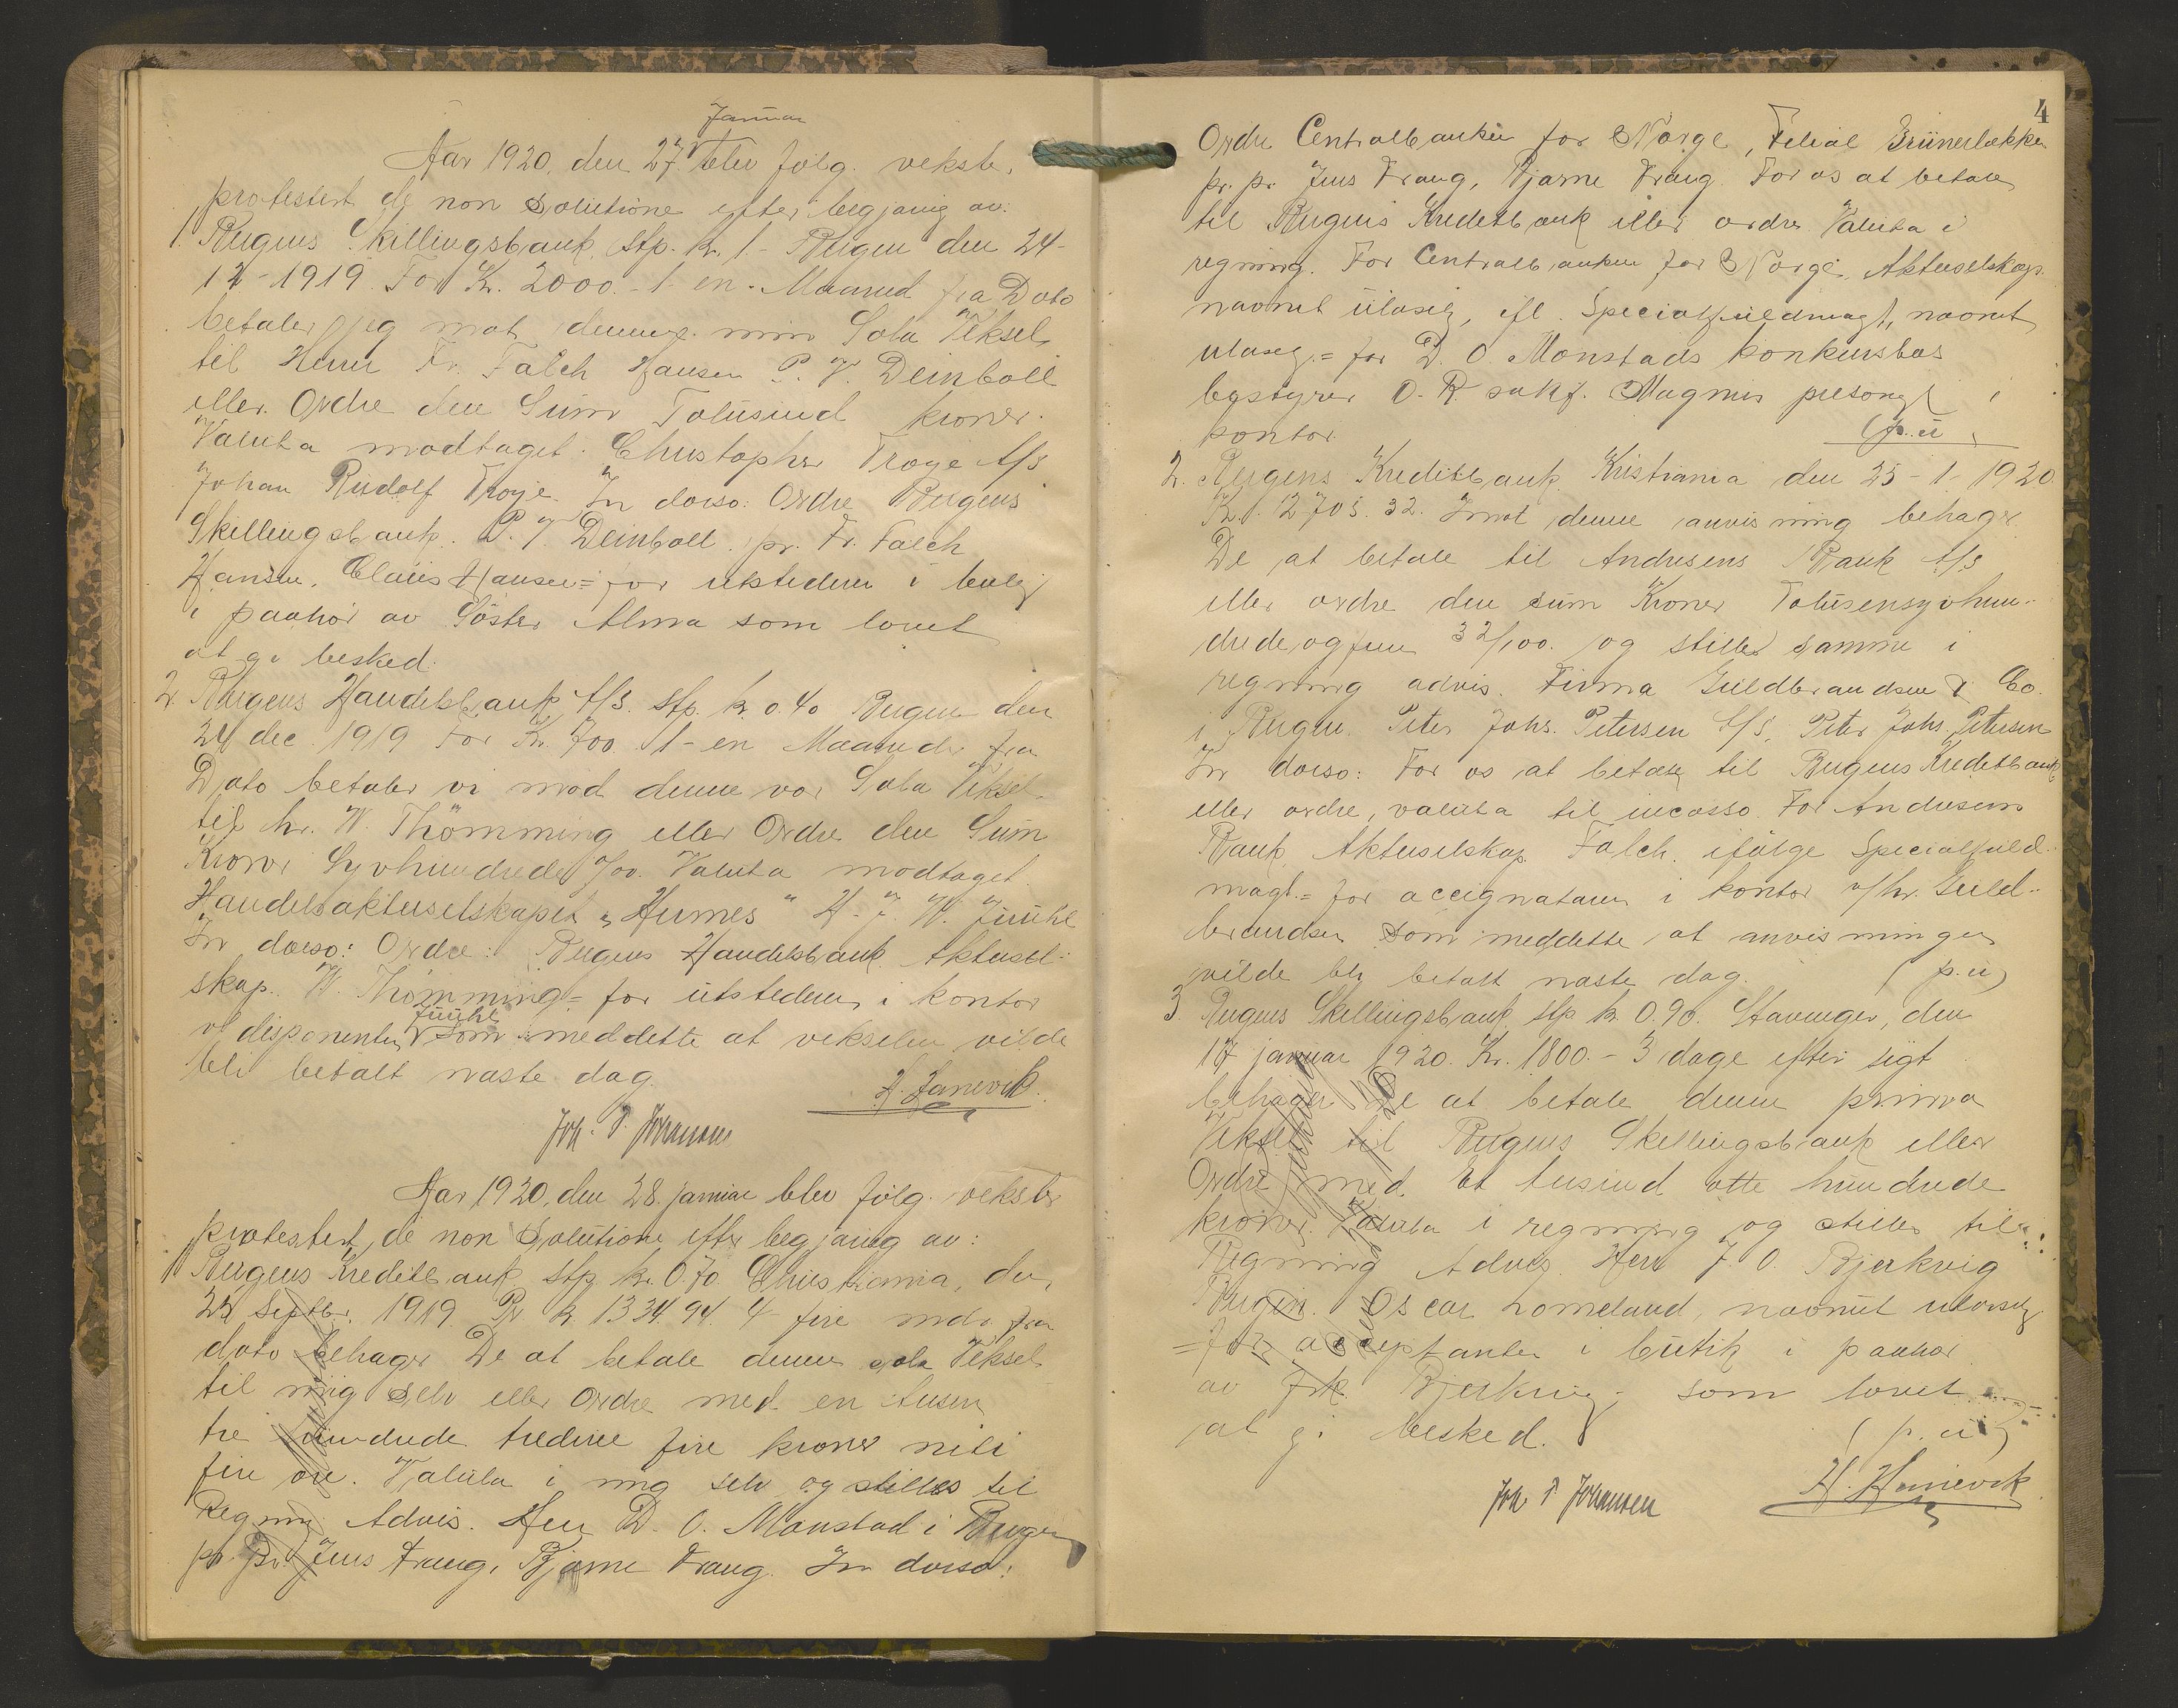 Januar
Aar 1920, den 27. blev følg. veksler
protestert de non Solutione efter begjæring av:
1. Bergens Skillingsbank, Stp. kr. 1 - Bergen den 24-
12-1919. For Kr. 2000.- 1- en - Maaned fra Dato
betaler jeg mot denne min Sola Veksel
til Herrer Fr. Falch Hansen P. V. Deinboll
eller Ordre den Sum Totusind kroner.
Valuta modtaget. Christopher Troye A/S
Johan Rudolf Troye. In dorso: Ordre Bergens
Skillingsbank. P. V. Deinboll. pr. Fr. Falch
Hansen, Claus Hansen = for utstederen i bolig
i paahør av Søster Alma som lovet
at gi besked.
2. Bergens Handelsbank A/S. Stp. kr. 0.40 Bergen den
24 dec. 1919 For Kr. 700. 1- en Maaned fra
Dato betaler vi mod denne vor Sola Veksel
til hr. W. Thömming eller Ordre den Sum
Kroner Syvhundrede /00. Valuta modtaget
Handelsaktieselskapet "Hermes" H. J. W. Juuhl
In dorso: Ordre: Bergens Handelsbank Aktiesel-
skap. W. Thömming = for utstederen i kontor
v/ disponenten Juuhl som meddelte at vekselen vilde
bli betalt næste dag.
H. Hanevik.
Joh. P. Johansen
Aar 1920, den 28. januar blev følg. veksler
protestert de non Solutione efter begjæring av:
1 Bergens Kreditbank Stp. kr. 0.70. Christiania, den
22 Septbr. 1919. Pr kr. 1334.94. 4 fire mdr. fra
dato behager De at betale denne sola Veksel
til mig selv eller Ordre med en tusen
tre hundrede tredive fire kroner nitti
fire øre. Valuta i mig selv og stilles til
Regning Advis. Herr D. O. Monstad i Bergen
pr. pr. Jens Fraug, Bjarne Fraug. In dorso:
4
Ordre Centralbanken for Norge, Filial Grünerløkken
pr. pr. Jens Fraug, Bjarne Fraug. For os at betale
til Bergens Kreditbank eller ordre Valuta i
regning. For Centralbanken for Norge, Aktieselskap.
navnet ulæselig, ifl. Specialfuldmagt, navnet
ulæseg. = for D. O. Monstads konkursbos
bestyrer O. R. sakf. Magnus personl i
kontor. (p.u.)
2. Bergens Kreditbank. Kristiania den 23-1-1920
Kr. 2705.32. Imot denne anvisning behager
De at betale til Andresens Bank A/S
eller ordre den sum Kroner Totusensyvhun-
drede og fem 32/100. og stilles samme i
regning advis. Firma Guldbrandsen & Co.
i Bergen. Peter Johs. Petersen A/S. Peter Johs. Petersen
In dorso: For os at betale til Bergens Kreditbank
eller ordre, valuta til incasso. For Andresens
Bank Aktieselskap. Falch. ifølge Specialfuld-
magt. = for accignataren i kontor v/hr. Guld-
brandsen som meddelte at anvisningen
vilde bli betalt næste dag. (p.u.)
3 Bergens Skillingsbank Stp. kr. 0.90. Stavanger, den
17 januar 1920. Kr. 1800.- 3 dage efter sigt
behager De at betale denne prima
Veksel til Bergens Skillingsbank eller
Ordre med Et tusind otte hundrede
kroner. Valuta i regning og stilles til
Regning Advis. Herr J. O. Bjerkvig
Bergen. Oscar Homeland, navnet ulæselig
= for acceptanten i butik i paahør
av frk. Bjerkvig, som lovet
at gi besked. (p.u.)
H. Hanevik
Joh. P. Johansen